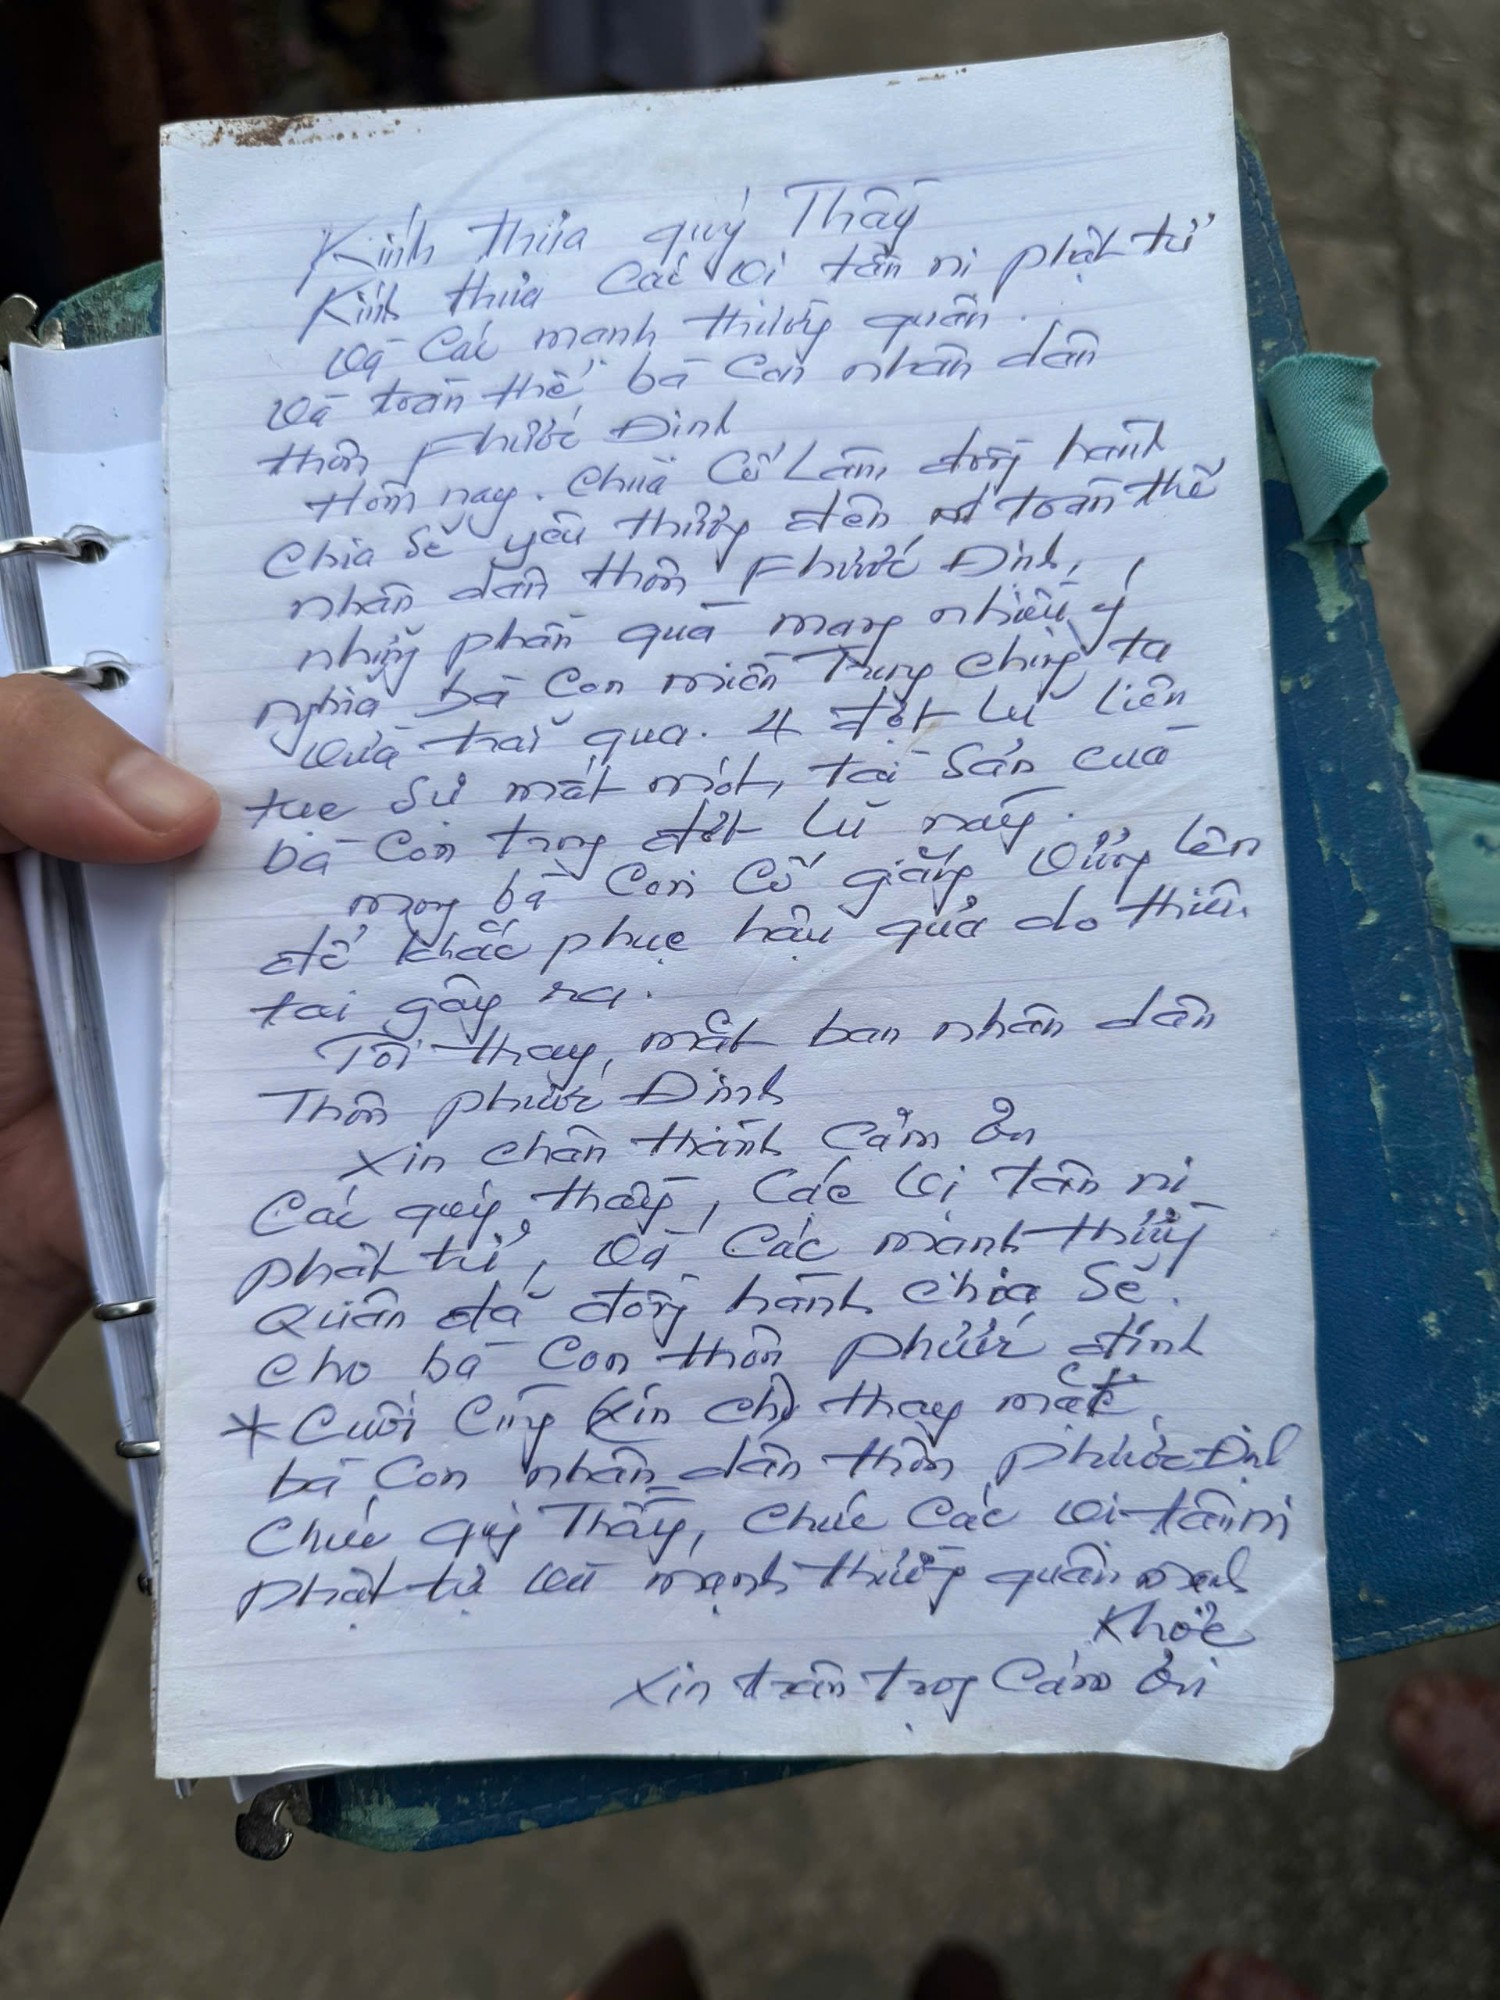 Kính thưa quý Thầy
Kính thưa Các vị tăn ni phật tử
Và Các mạnh thường quân.
Và toàn thể bà Con nhân dân
thôn Phước Định
Hôm nay. Chùa Cổ Lâm, đồng hành
Chia Sẽ yêu thương đến toàn thể
nhân dân thôn Phước Định,
những phần quà mang nhiều ý
nghĩa bà Con miền Trung chúng ta
Vừa trãi qua. 4 đợt Lũ liên
tục Sự mất mát, tài Sản của
bà Con trong đợt Lũ này.
mong bà Con Cố gắng Vươn lên
để khắc phục hậu quả do thiên
tai gây ra.
Tôi thay, mặt ban nhân dân
Thôn phước Định
Xin chân thành Cảm ơn
Các quý thầy, Các Vị tăn ni
phật tử, Và Các mạnh thường
Quân đã đồng hành chia Sẽ.
cho bà Con thôn phước định
* Cuối Cùng (xin chị) thay mặt
bà Con nhân dân thôn phước Định
Chúc quý Thầy, Chúc Các Vị tăn ni
phật tử Và mạnh thường quân mạnh
Khỏe
Xin trân trọng Cảm ơn